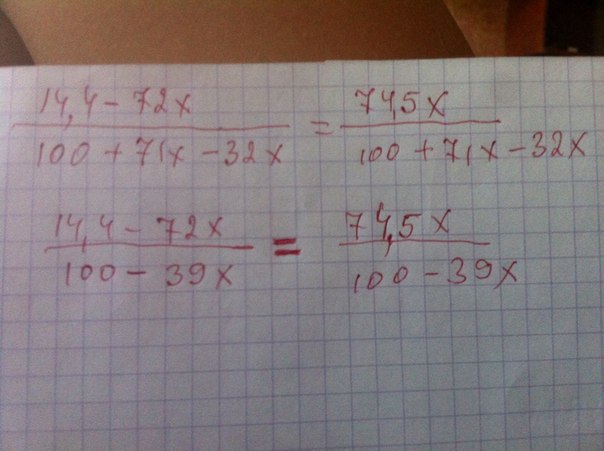 14,4 - 72x / 100 + 71x - 32x = 74,5x / 100 + 71x - 32x
14,4 - 72x / 100 - 39x = 74,5x / 100 - 39x